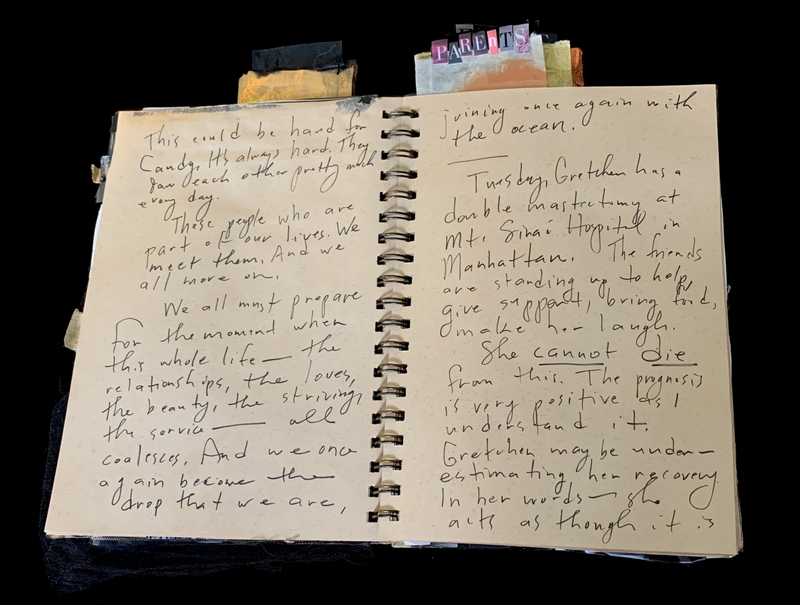 PAREnTS
This could be hard for
Candy. It's always hard. They
saw each other pretty much
every day.
These people who are
part of our lives. We
meet them. And we
all move on.
We all must prepare
for the momind when
this whole life — the
relationships, the loves,
the beauty, the striving,
the service — all
coalesces. And we once
again become the
drop that we are,
joining once again with
the ocean.
Tuesday, Gretchen has a
double mastectomy at
Mt. Sinai Hospital in
Manhattan. The friends
are standing up to help,
give support, bring food,
make her laugh.
She cannot die
from this. The prognosis
is very positive as I
understand it.
Gretchen may be under-
estimating her recovery.
In her words — she
acts as though it is